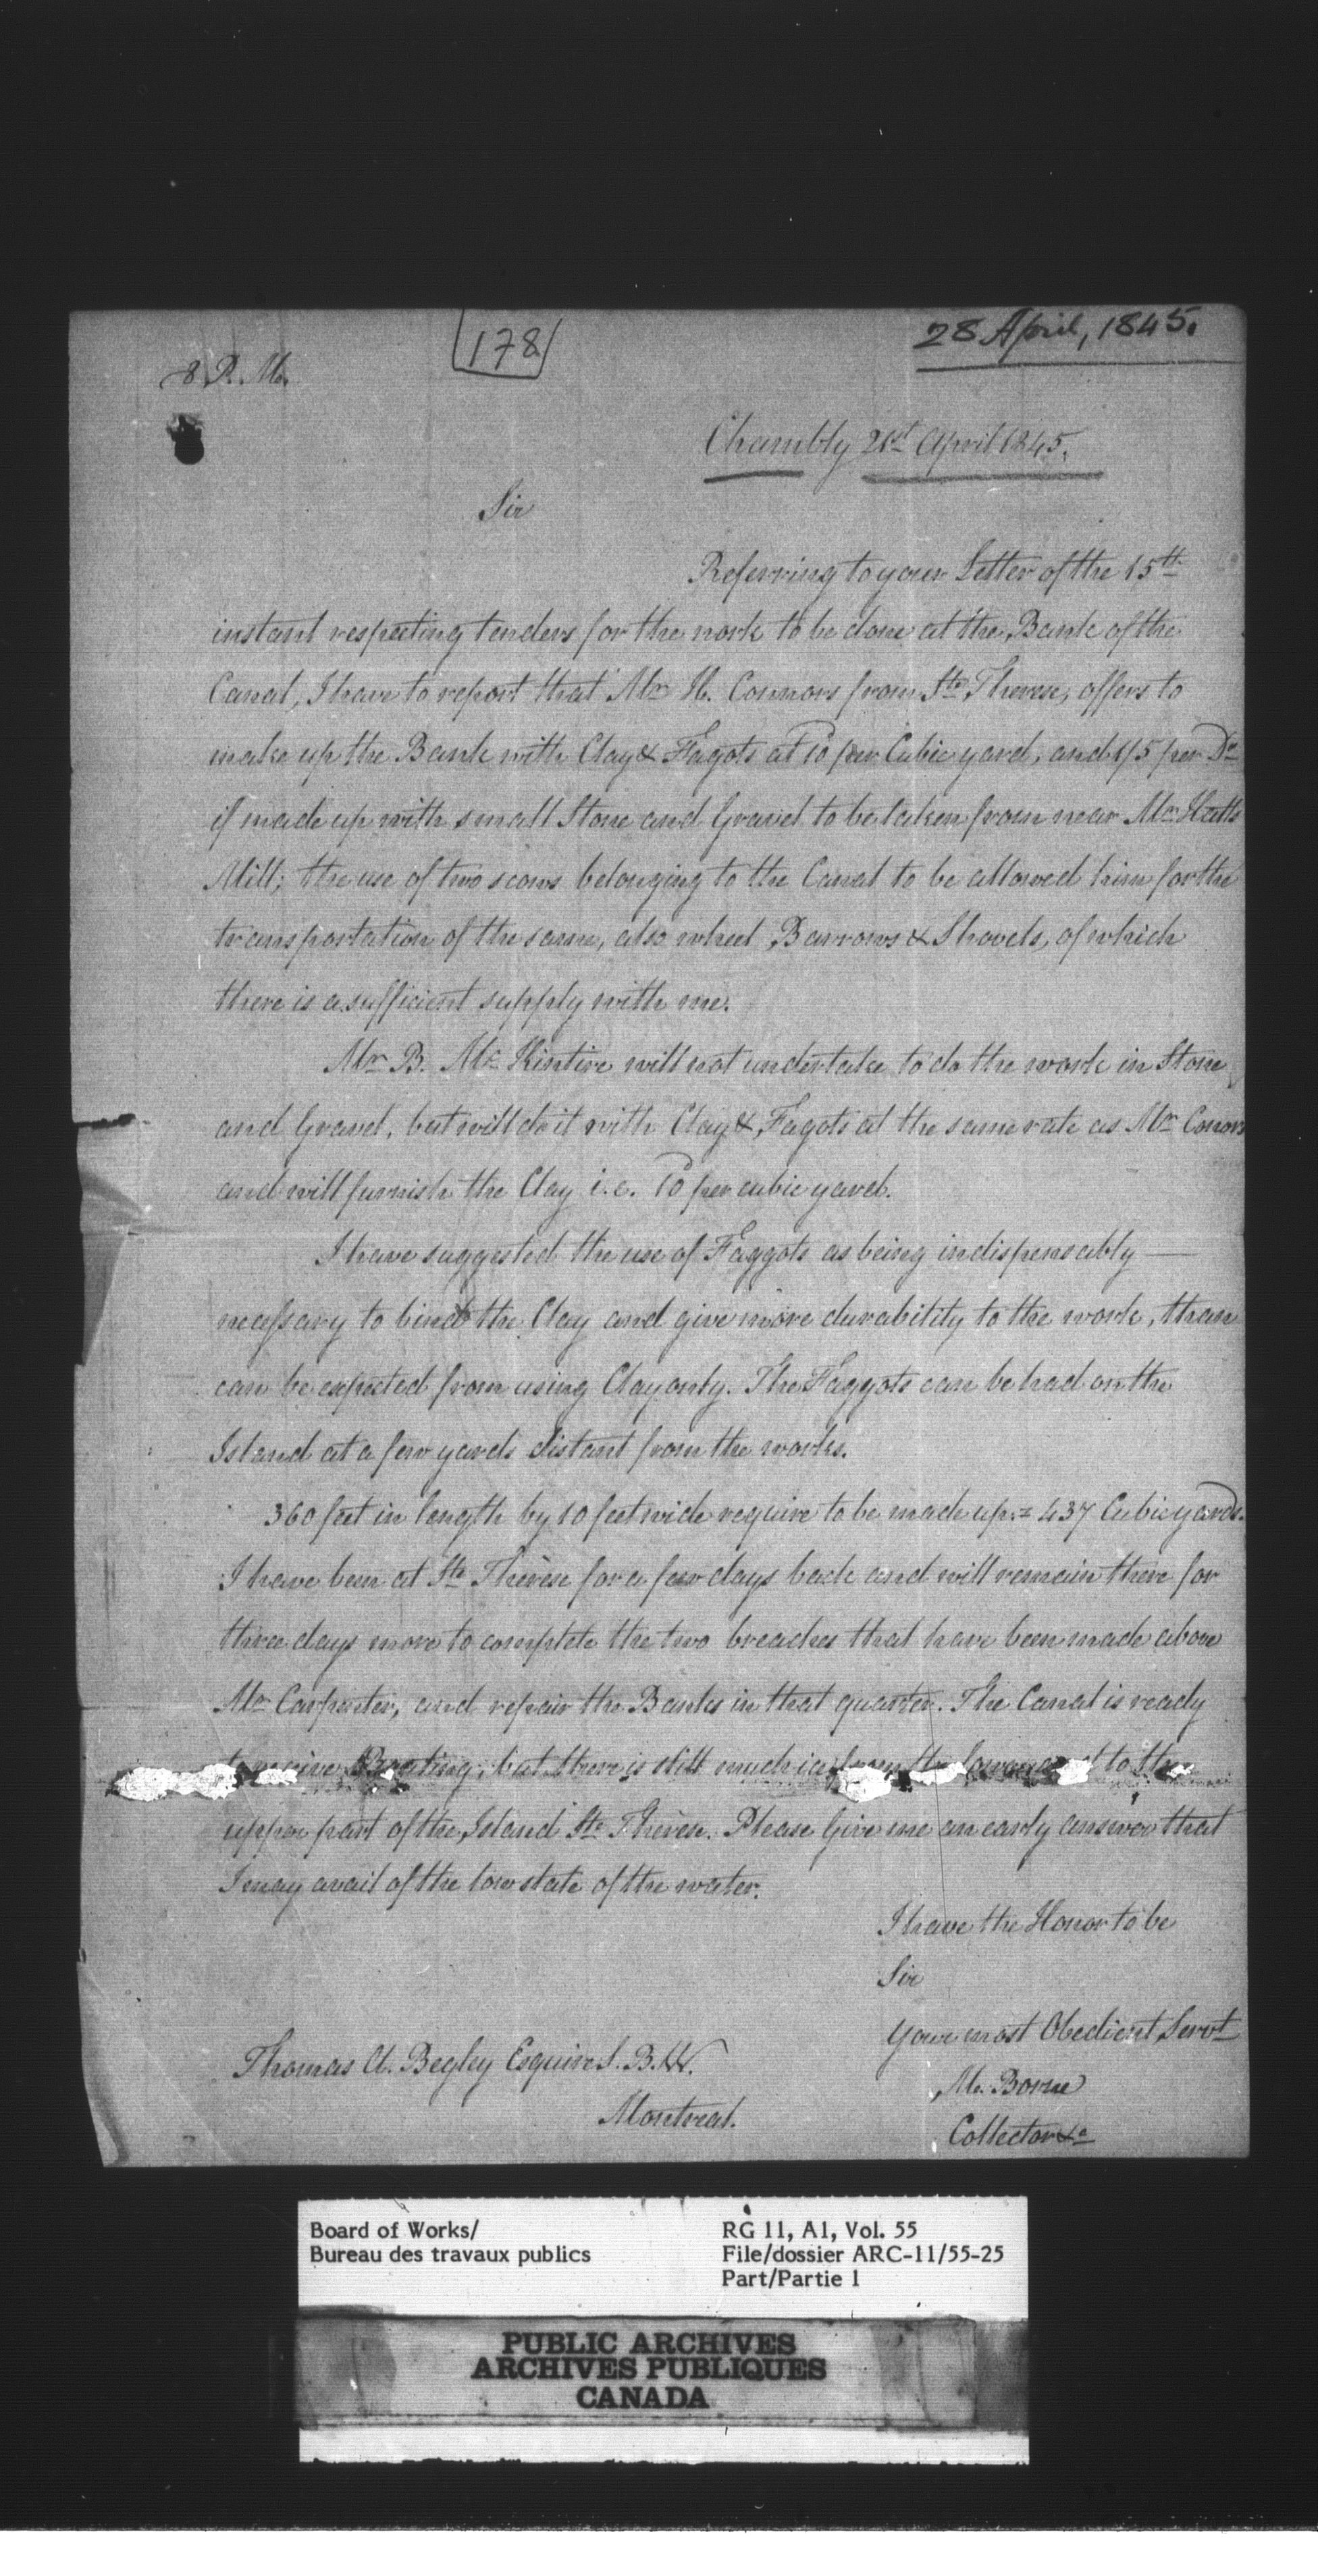 178
28 April, 1845.
8 P. M.
Chambly 21st April 1845.
Sir
Referring to your Letter of the 15th
instant respecting tenders for the work to be done at the Bank of the
Canal, I have to report that Mr H. Connors from Ste Therese, offers to
make up the Bank with Clay & Fagots at per Cubic yard, and 1/5 per Do
if made up with small Stone and Gravel to be taken from near Mr Hatts
Mill; the use of two scows belonging to the Canal to be allowed him for the
transportation of the same, also wheel Barrows & Shovels, of which
there is a sufficient supply with me.
Mr B. Mc Kintire will not undertake to do the work in Stone
and Gravel, but will do it with Clay & Fagots at the same rate as Mr Conors
and will furnish the Clay i.e. per cubic yard.
I have suggested the use of Faggots as being indispensably —
necessary to bind the Clay and give more durability to the work, than
can be expected from using Clay only. The Faggots can be had on the
Island at a few yards distant from the works.
360 feet in length by 10 feet wide require to be made up = 437 Cubic yards.
I have been at Ste Thérèse for a few days back and will remain there for
three days more to complete the two breaches that have been made above
Mr Carpenter, and repair the Banks in that quarter. The Canal is ready
to receive Boating, but there is still much ice from the to the
upper part of the Island Ste Thérèse. Please Give me an early answer that
I may avail of the low state of the water.
I have the Honor to be
Sir
Your most Obedient Servt
Thomas A. Begley Esquire S. B. W.
Montreal.
M. Borne
Collector &c
Board of Works/
Bureau des travaux publics
RG 11, A1, Vol. 55
File/dossier ARC-11/55-25
Part/Partie 1
PUBLIC ARCHIVES
ARCHIVES PUBLIQUES
CANADA